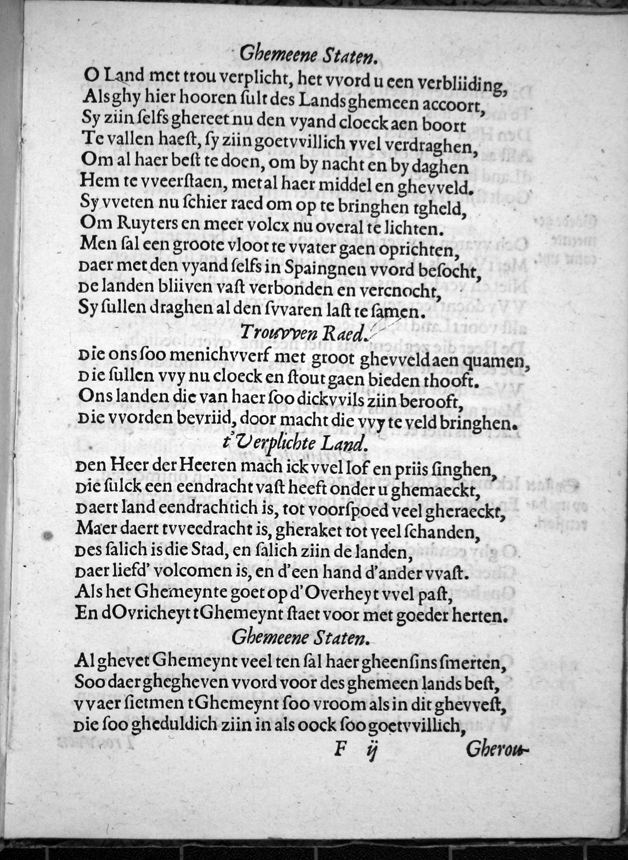 Ghemeene Staten.
O Land met trou verplicht, het vvord u een verbliiding,
Als ghy hier hooren ſult des Lands ghemeen accoort,
Sy ziin ſelfs ghereet nu den vyand cloeck aen boort
Te vallen haeſt, ſy ziin goetvvillich vvel verdraghen,
Om al haer beſt te doen, om by nacht en by daghen
Hem te vveerſtaen, met al haer middel en ghevveld.
Sy vveten nu ſchier raed om op te bringhen tgheld,
Om Ruyters en meer volcx nu overal te lichten.
Men ſal een groote vloot te vvater gaen oprichten,
Daer met den vyand ſelfs in Spaingnen vvord beſocht,
De landen bliiven vaſt verbonden en verenocht,
Sy ſullen draghen al den ſvvaren laſt te ſamen.
Trouvven Raed.
Die ons ſoo menichvverf met groot ghevveld aen quamen,
Die ſullen vvy nu cloeck en ſtout gaen bieden thooft.
Ons landen die van haer ſoo dickvvils ziin berooft,
Die vvorden bevriid, door macht die vvy te veld bringhen.
t'Verplichte Land.
Den Heer der Heeren mach ick vvel lof en priis ſinghen,
Die ſulck een eendracht vaſt heeft onder u ghemaeckt,
Daert land eendrachtich is, tot voorſpoed veel gheraeckt,
Maer daert tvveedracht is, gheraket tot veel ſchanden,
Des ſalich is die Stad, en ſalich ziin de landen,
Daer liefd' volcomen is, en d'een hand d'ander vvaſt.
Als het Ghemeynte goet op d'Overheyt vvel paſt,
En dOvricheyt tGhemeynt ſtaet voor met goeder herten.
Ghemeene Staten.
Al ghevet Ghemeynt veel ten ſal haer gheenſins ſmerten,
Soo daer ghegheven vvord voor des ghemeen lands beſt,
vvaer ſietmen tGhemeynt ſoo vroom als in dit ghevveſt,
Die ſoo gheduldich ziin in als oock ſoo goetvvillich,
F ij Gherou-